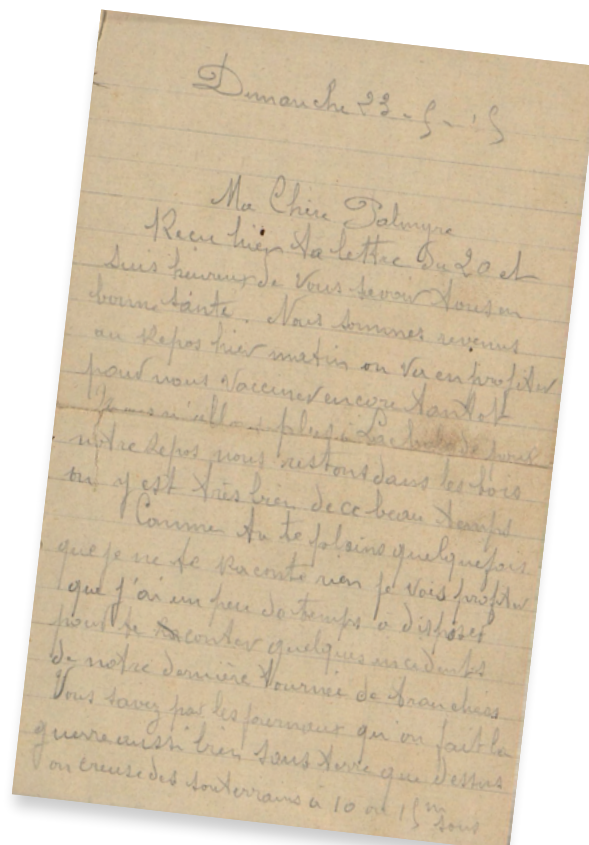 Dimanche 23 - 5 - 15
Ma Chère Palmyre
Reçu hier ta lettre du 20 et
suis heureux de vous savoir tous en
bonne santé. Nous sommes revenus
au Repos hier matin on va en profiter
pour nous vacciner encore tantôt
Nous n'allons plus à pour
notre Repos nous restons dans les bois
on y est très bien de ce beau temps
Comme tu te plains quelquefois
que je ne te Raconte rien je vais profiter
que j'ai un peu de temps a disposer
pour te Raconter quelques incidents
de notre dernière tournée de tranchées
Vous savez par les journaux qu'on fait la
guerre aussi bien sous terre que dessus
on creuse des souterrains à 10 ou 15m sous